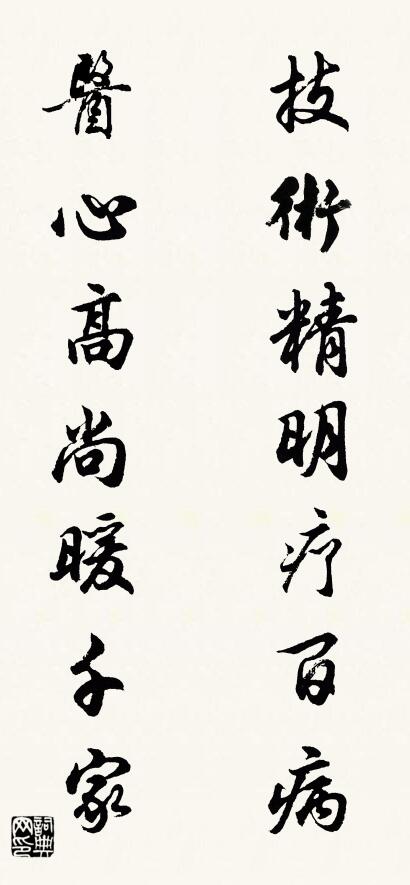 技術精明疗百病
醫心高尚暖千家
詞典网印